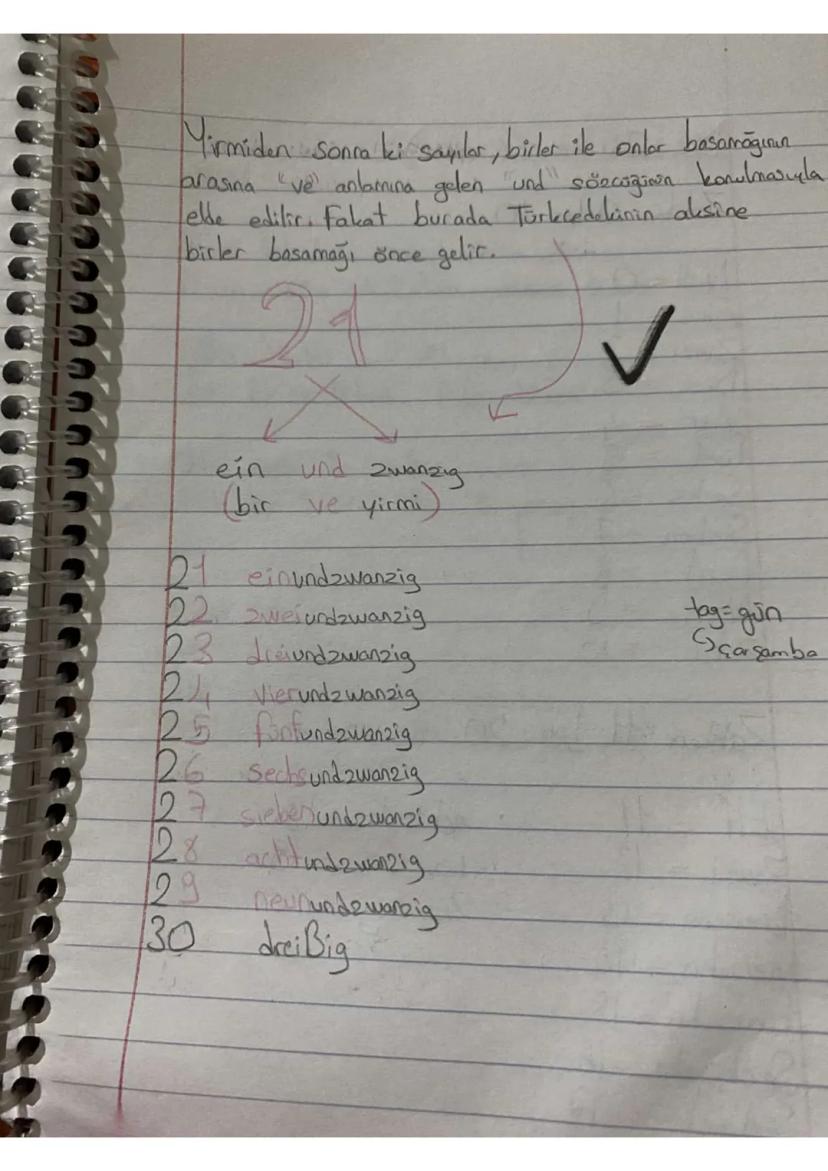 Yirmiden sonra ki sayılar, birler ile onlar basamağının
arasına "ve" anlamına gelen "und" sözcüğünün konulmasıyla
elde edilir. Fakat burada Türkçedekinin aksine
birler basamağı önce gelir.
21
ein und zwanzig
(bir ve yirmi)
21 einundzwanzig
22 zweiundzwanzig
23 dreiundzwanzig
24 vierundzwanzig
25 fünfundzwanzig
26 sechsundzwanzig
27 siebenundzwanzig
28 achtundzwanzig
29 neunundzwanzig
30 dreißig
tag=gün
çarşamba